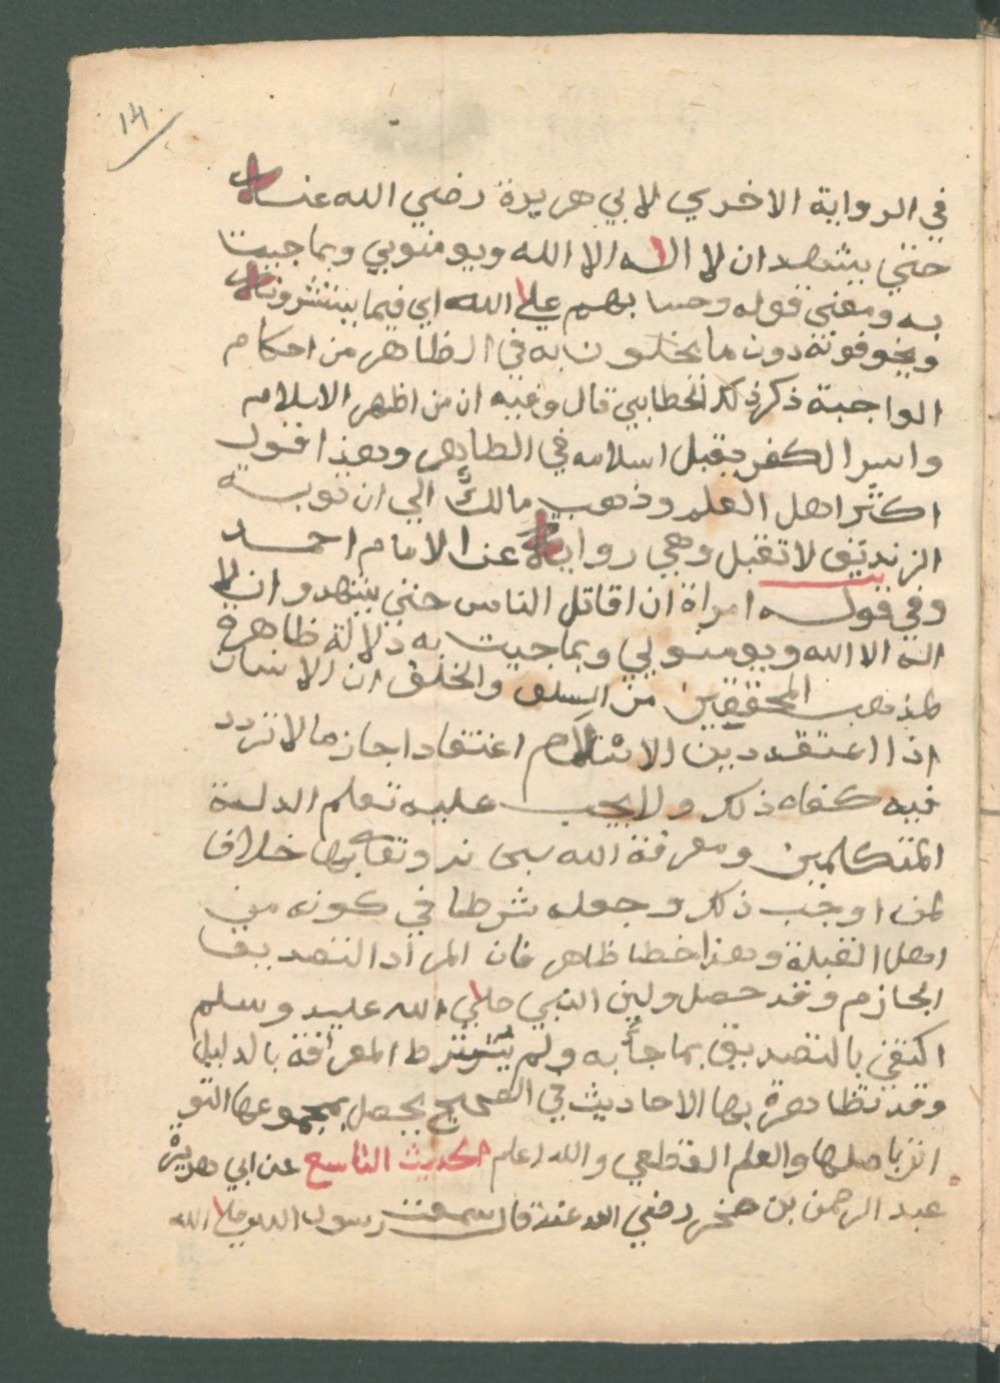 ١٤
في الرواية الاخري لابي هريرة رضي الله عنه
حتي يشهد ان لا اله الا الله ويومنوبي وبما جيت
به ومعني قوله وحسابهم علي الله اي فيما يستترونه
ويخوفونه دون ما يخلون به في الظاهر من احكام
الواجبة ذكر ذلك الخطابي قال وفيه ان من اظهر الاسلام
واسر الكفر يقبل اسلامه في الظاهر وهذا قول
اكثر اهل العلم وذهب مالك الي ان توبة
الزنديق لا تقبل وهي رواية عن الامام احمد
وفي قوله امراة ان اقاتل الناس حتي يشهدو ان لا
اله الا الله ويومنو بي وبما جيت به دلالة ظاهرة
لمذهب المحققين من السلف والخلف ان الانسان
اذا اعتقد دين الاسلام اعتقادا جازما لا تردد
فيه كفاه ذلك ولا يجب عليه تعلم الدلة
المتكلمين ومعرفة الله بها خلافا
لمن اوجب ذلك وجعله شرطا في كونه من
اهل القبلة وهذا خطا ظاهر فان المراد التصديق
الجازم وقد حصل ولين النبي صلي الله عليه وسلم
اكتفي بالتصديق بما جأ به ولم يشترط المعرفة بالدليل
وقد تظاهرة بها الاحاديث في الصحيح يحصل بمجموعها التو
اتر باصلها والعلم القطعي والله اعلم الحديث التاسع عن ابي هريرة
عبد الرحمن بن صخر رضي الله عنه قال سمعت رسول الله صلا الله